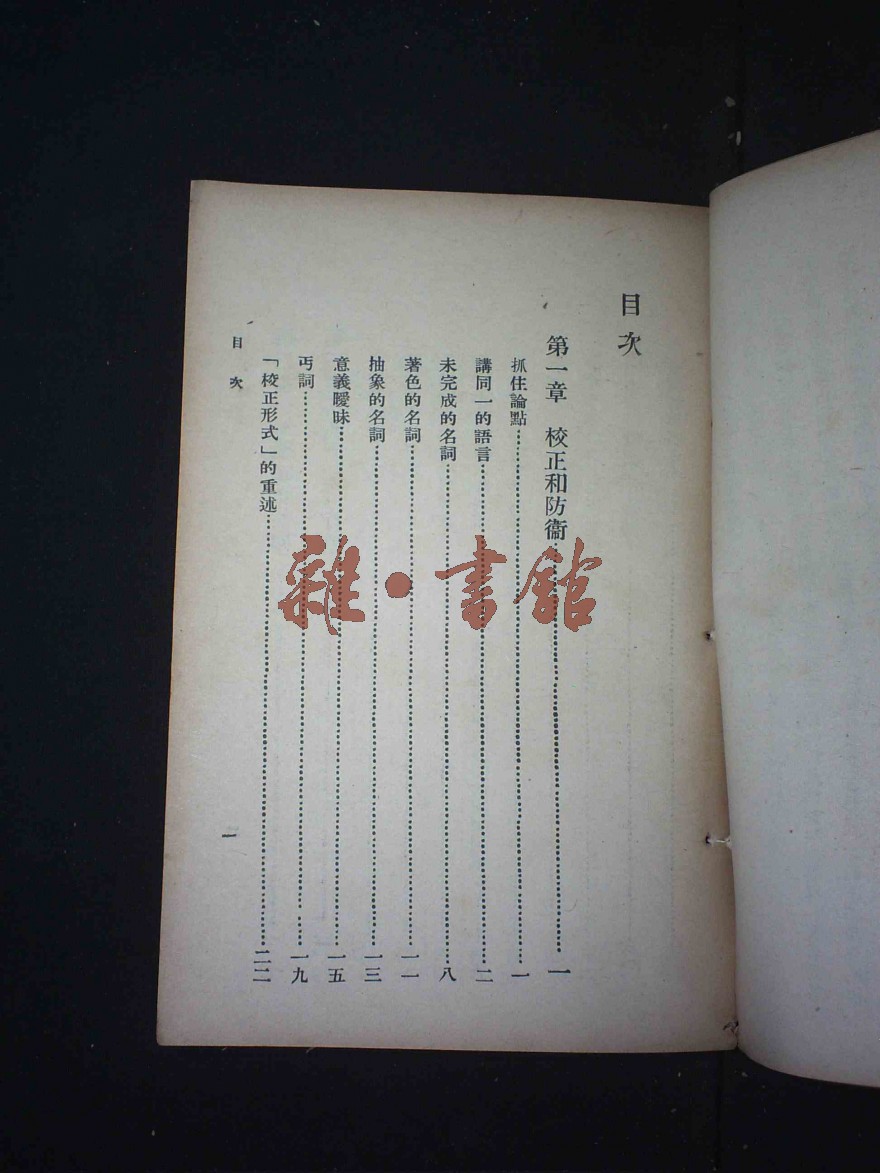 目次
第一章　校正和防衞……一
抓住論點……一
講同一的語言……二
未完成的名詞……八
著色的名詞……一一
抽象的名詞……一三
意義曖昧……一五
丐詞……一九
「校正形式」的重述……二二
目次
一
雜·書館